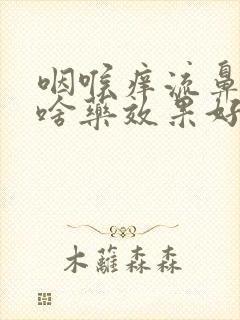 咽喉痒流鼻
啥药效果好
木蘿森森